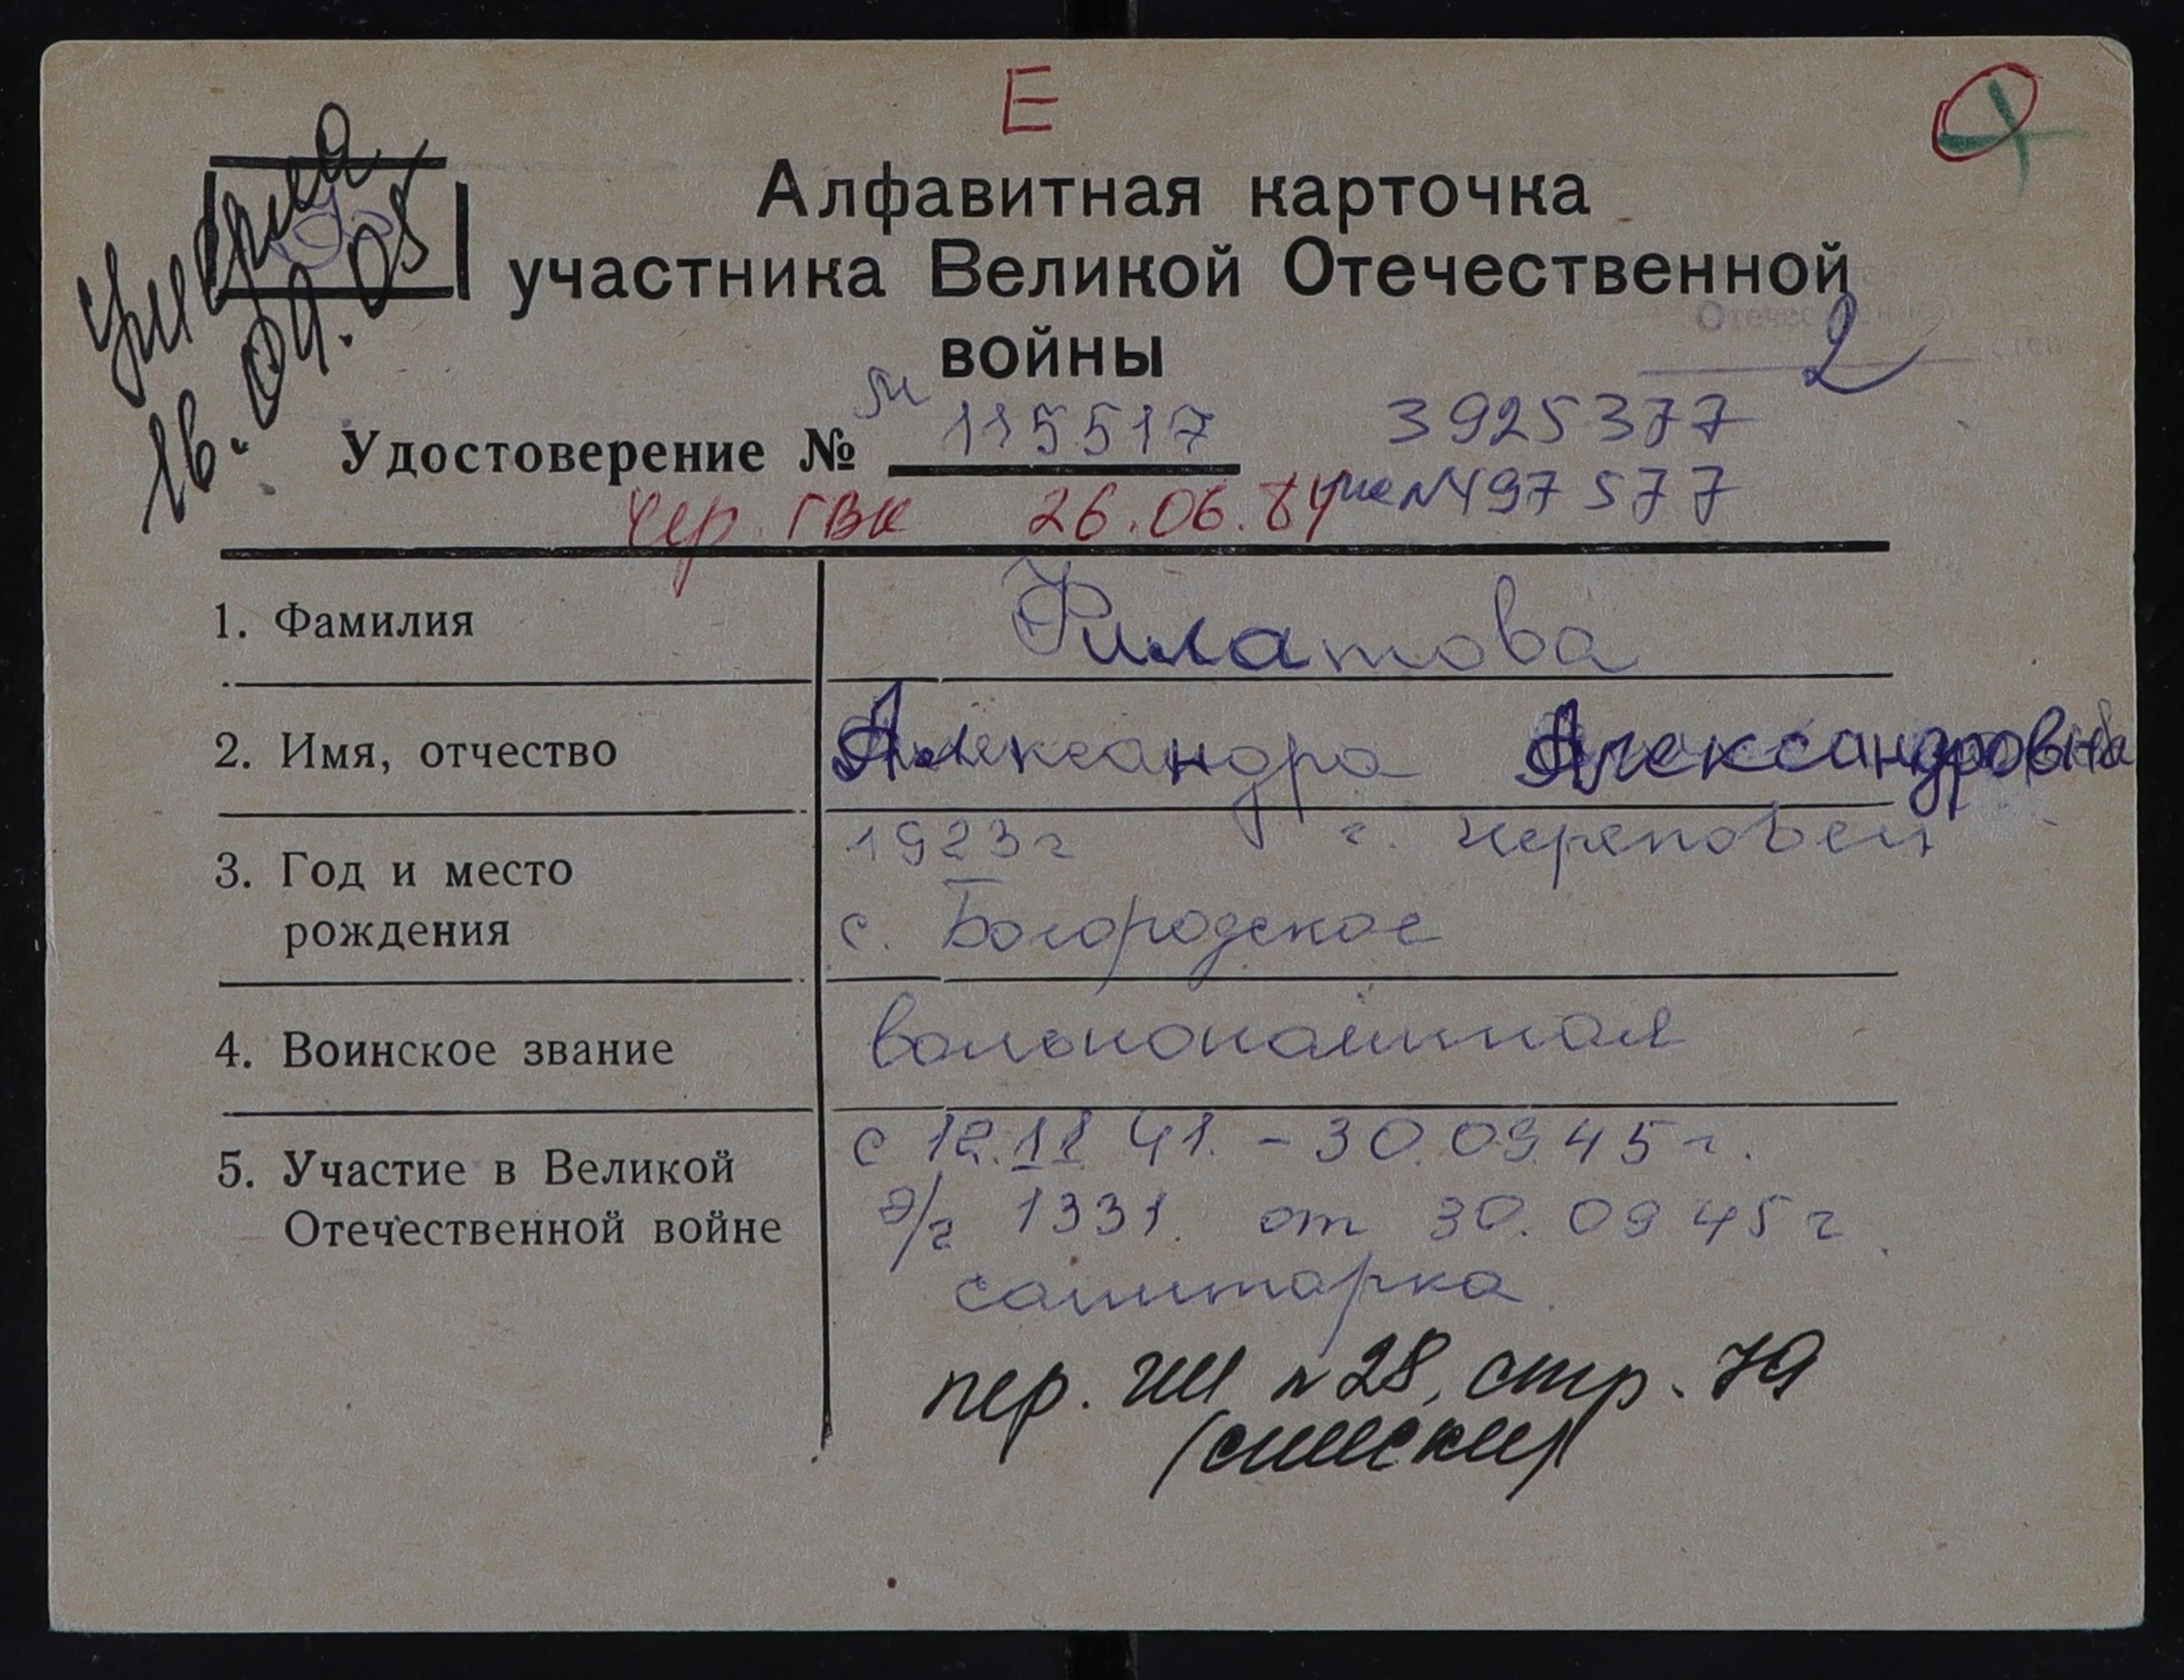 Е
умерла
16.04.05
Алфавитная карточка
участника Великой Отечественной
войны
Отечественной
степ.
2
Удостоверение № 115517
3925377
Чер. ГВК 26.06.84
497577
1. Фамилия Филатова
2. Имя, отчество Александра Александровна
3. Год и место
рождения
1923г г. Череповец
с. Богородское
4. Воинское звание вольнонаемная
5. Участие в Великой
Отечественной войне
с 12.11 41. – 30.09.45г.
э/г 1331. от 30.09 45г.
санитарка.
пер. № 28, стр. 79
(списки)